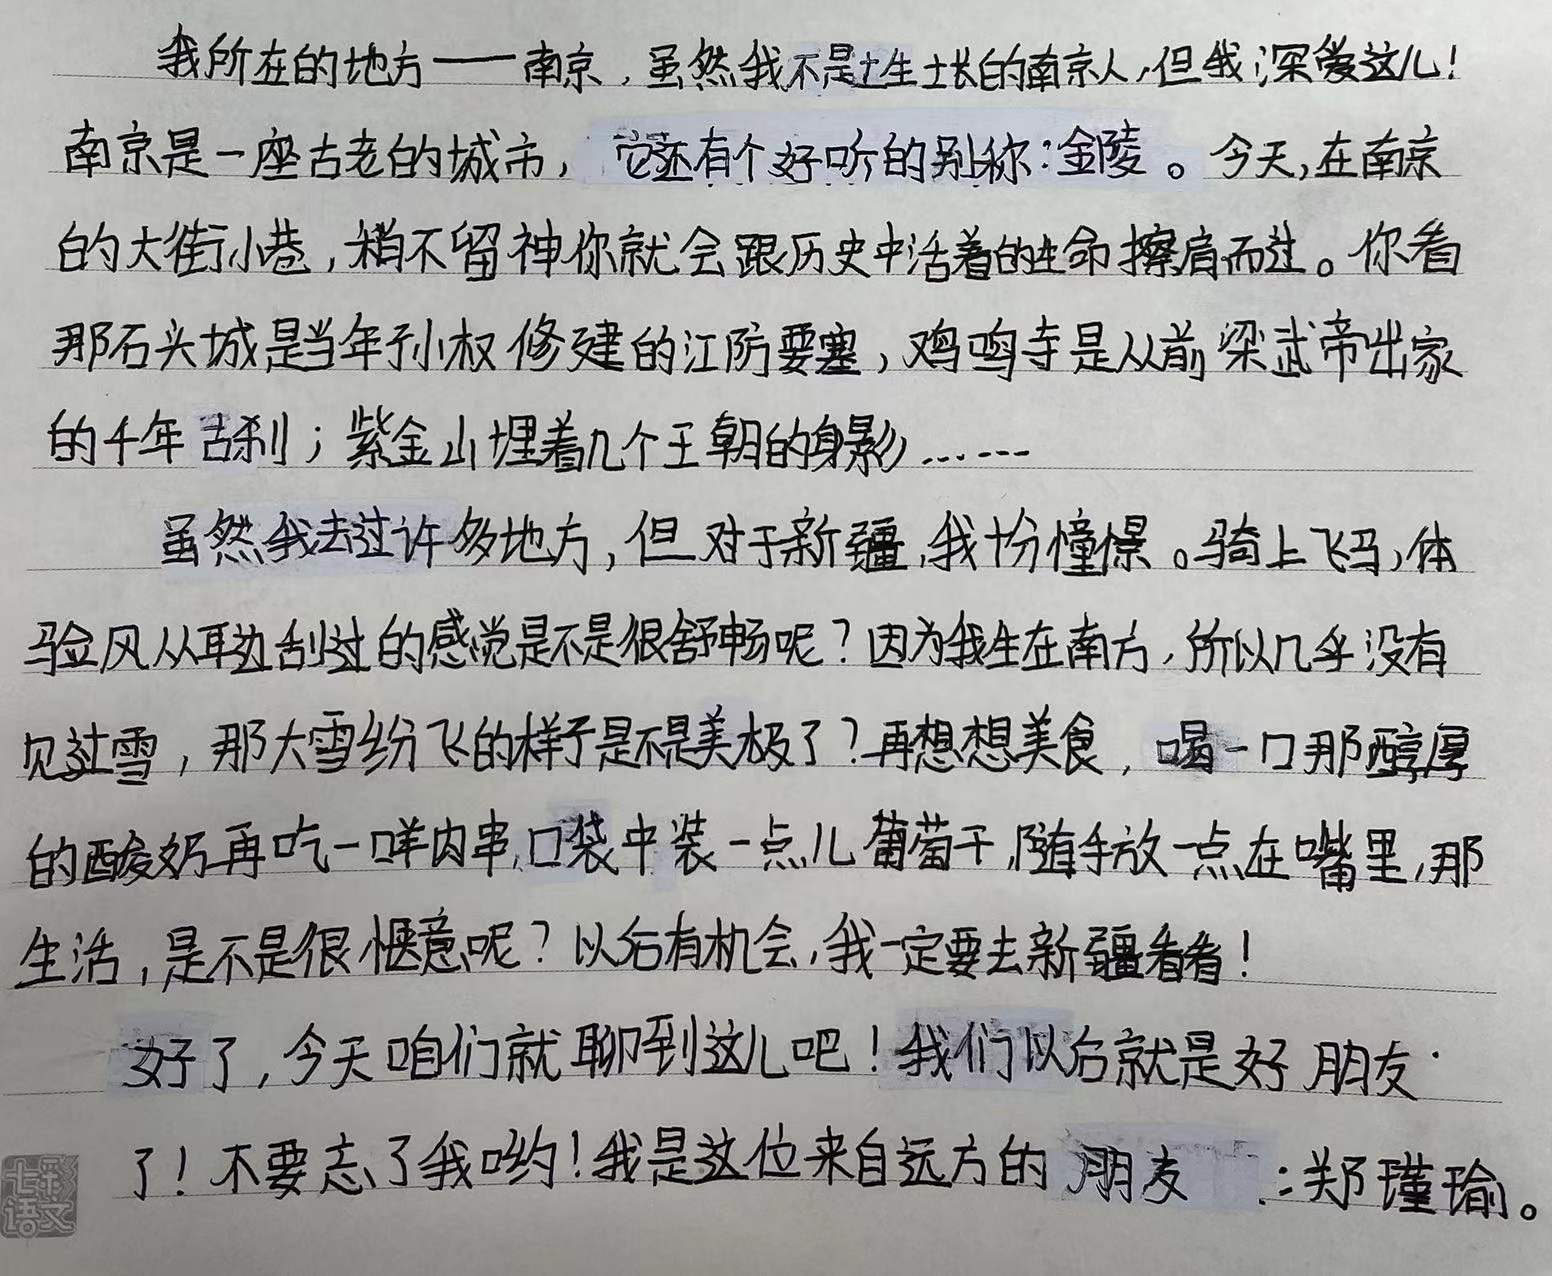 我所在的地方——南京，虽然我不是土生土长的南京人，但我深爱这儿！
南京是一座古老的城市，它还有个好听的别称：金陵。今天，在南京
的大街小巷，稍不留神你就会跟历史中活着的生命擦肩而过。你看
那石头城是当年孙权修建的江防要塞，鸡鸣寺是从前梁武帝出家
的千年古刹；紫金山埋着几个王朝的身影……
虽然我去过许多地方，但对于新疆，我十分憧憬。骑上飞马，体
验风从耳边刮过的感觉是不是很舒畅呢？因为我生在南方，所以几乎没有
见过雪，那大雪纷飞的样子是不是美极了？再想想美食，喝一口那醇厚
的酸奶再吃一咩肉串，口袋中装一点儿葡萄干，随手放一点在嘴里，那
生活，是不是很惬意呢？以后有机会，我一定要去新疆看看！
好了，今天咱们就聊到这儿吧！我们以后就是好朋友
了！不要忘了我哟！我是这位来自远方的朋友：郑瑾瑜。
七彩语文